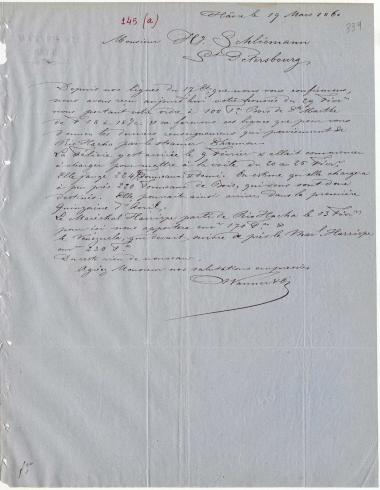 145 (a)
Hâvre le 19 Mars 1860
339
Monsieur Hy Schliemann
St Petersbourg
Depuis nos lignes du 17 que nous vous confirmons,
nous avons reçu aujourd'hui votre du 29 févr
nous portant ordre, à 100 Tx Bois de Ste Marthe
de F 18 à 18½. ne que pour vous
donner les derniers renseignements qui parviennent de
Rio Hacha par le steamer
La est arrivée le 9 Février & allait commencer
à charger pour mettre à la voile du 20 au 25 Févr.
Elle jauge 224 Tonneaux & demi. On estime qu'elle chargera
à peu près 220 Tonneaux de Bois, qui nous sont
destinés. Elle pourrait ainsi arriver dans la première
quinzaine d'Avril.
Le Maréchal partie de Rio Hacha le 15 Févr
pour ici nous apportera env 170 Tx &
le Venezuela, qui devait suivre de près le Maréchal
env 220 Tx
Du reste rien de nouveau.
Agréez Monsieur nos salutations empressées
Wanner & Co